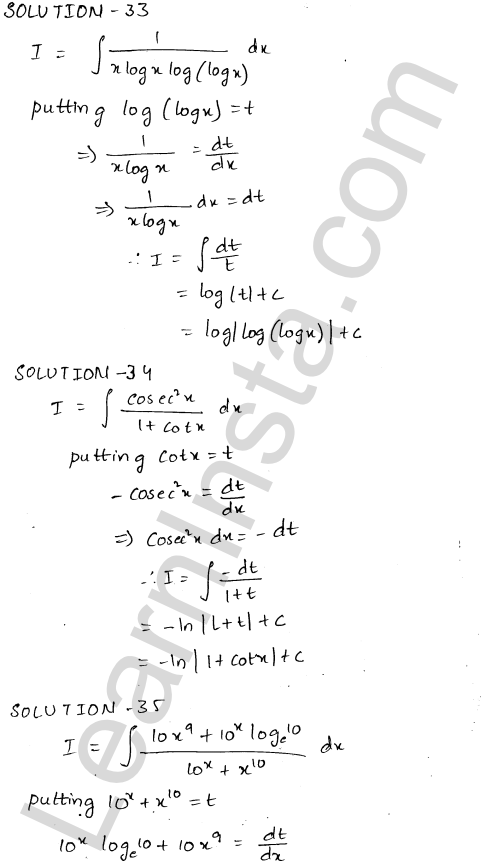 SOLUTION-33
I = ∫ 1/(x log x log(log x)) dx
putting log(log x) = t
⇒ 1/(x log x) = dt/dx
⇒ 1/(x log x) . dx = dt
∴ I = ∫ dt/t
= log|t| + c
= log|log(log x)| + c
SOLUTION-34
I = ∫ cosec²x/(1 + cot x) dx
putting cot x = t
- cosec²x = dt/dx
⇒ cosec²x dx = - dt
∴ I = ∫ -dt/(1+t)
= -ln|1+t| + c
= -ln|1+ cot x| + c
SOLUTION-35
I = ∫ (10x⁹ + 10ˣ logₑ10)/(10ˣ + x¹⁰) dx
putting 10ˣ + x¹⁰ = t
10ˣ logₑ10 + 10x⁹ = dt/dx
LearnInsta.com